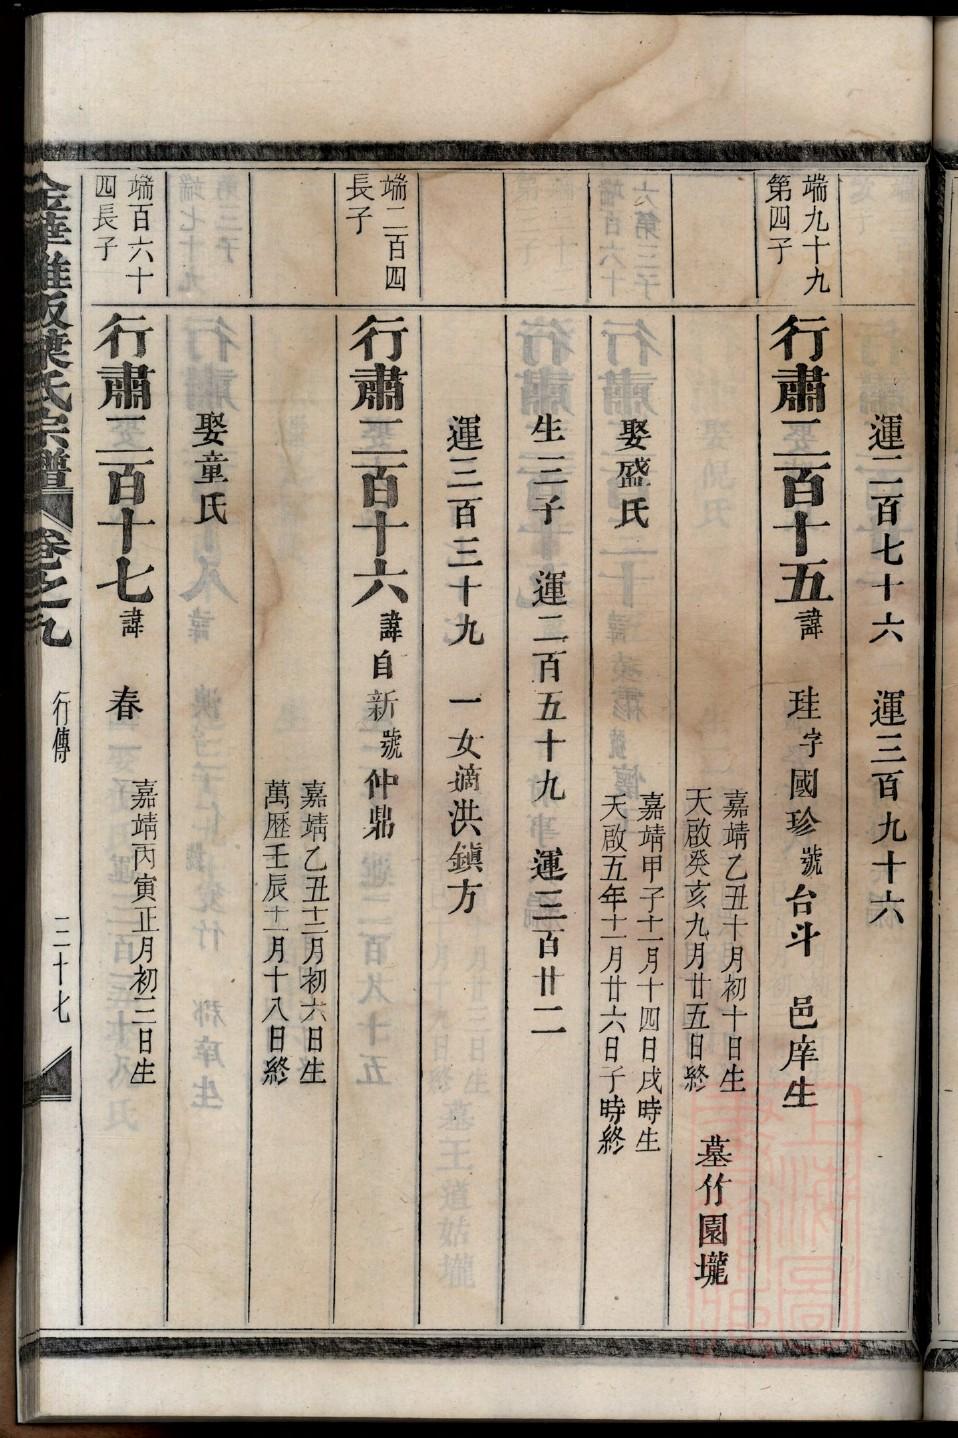 運二百七十六　運三百九十六
端九十九
第四子
行肅二百十五諱　珪字國珍號台斗　邑庠生
嘉靖乙丑十月初十日生
天啟癸亥九月廿五日終
墓竹園壠
娶盛氏
嘉靖甲子十一月十四日戌時生
天啟五年十一月廿六日子時終
生三子　運二百五十九　運三百廿二
運三百三十九　一女適洪鎮方
端二百四
長子
行肅二百十六諱自新號仲鼎
嘉靖乙丑十二月初六日生
萬歷壬辰十一月十八日終
娶童氏
端百六十
四長子
行肅二百十七諱　春
嘉靖丙寅正月初三日生
葉氏宗譜　卷之九　行傳　三十七